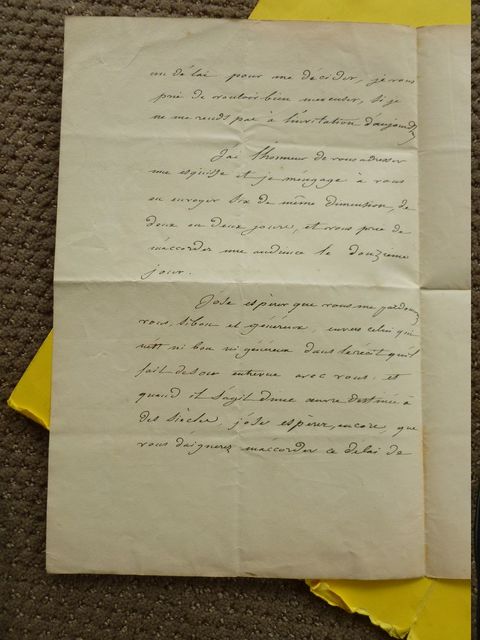 un délai pour me décider, je vous
prie de vouloir bien m'excuser, si je
ne me rends pas à l'invitation d'aujourd
J'ai l'honneur de vous adresser
une esquisse et je m'engage à vous
en envoyer six de même dimension, de
deux en deux jours, et vous prie de
m'accorder une audience le douzieme
jour.
J'ose espérer que vous me pardonnerez
vous, si bon et généreux, envers celui qui
n'est ni bon ni généreux dans le récit qu'il
fait de son entrevue avec vous. et
quand il s'agit d'une œuvre destinée à
des siècles, j'ose espérer, encore, que
vous daignerez m'accorder ce délai de